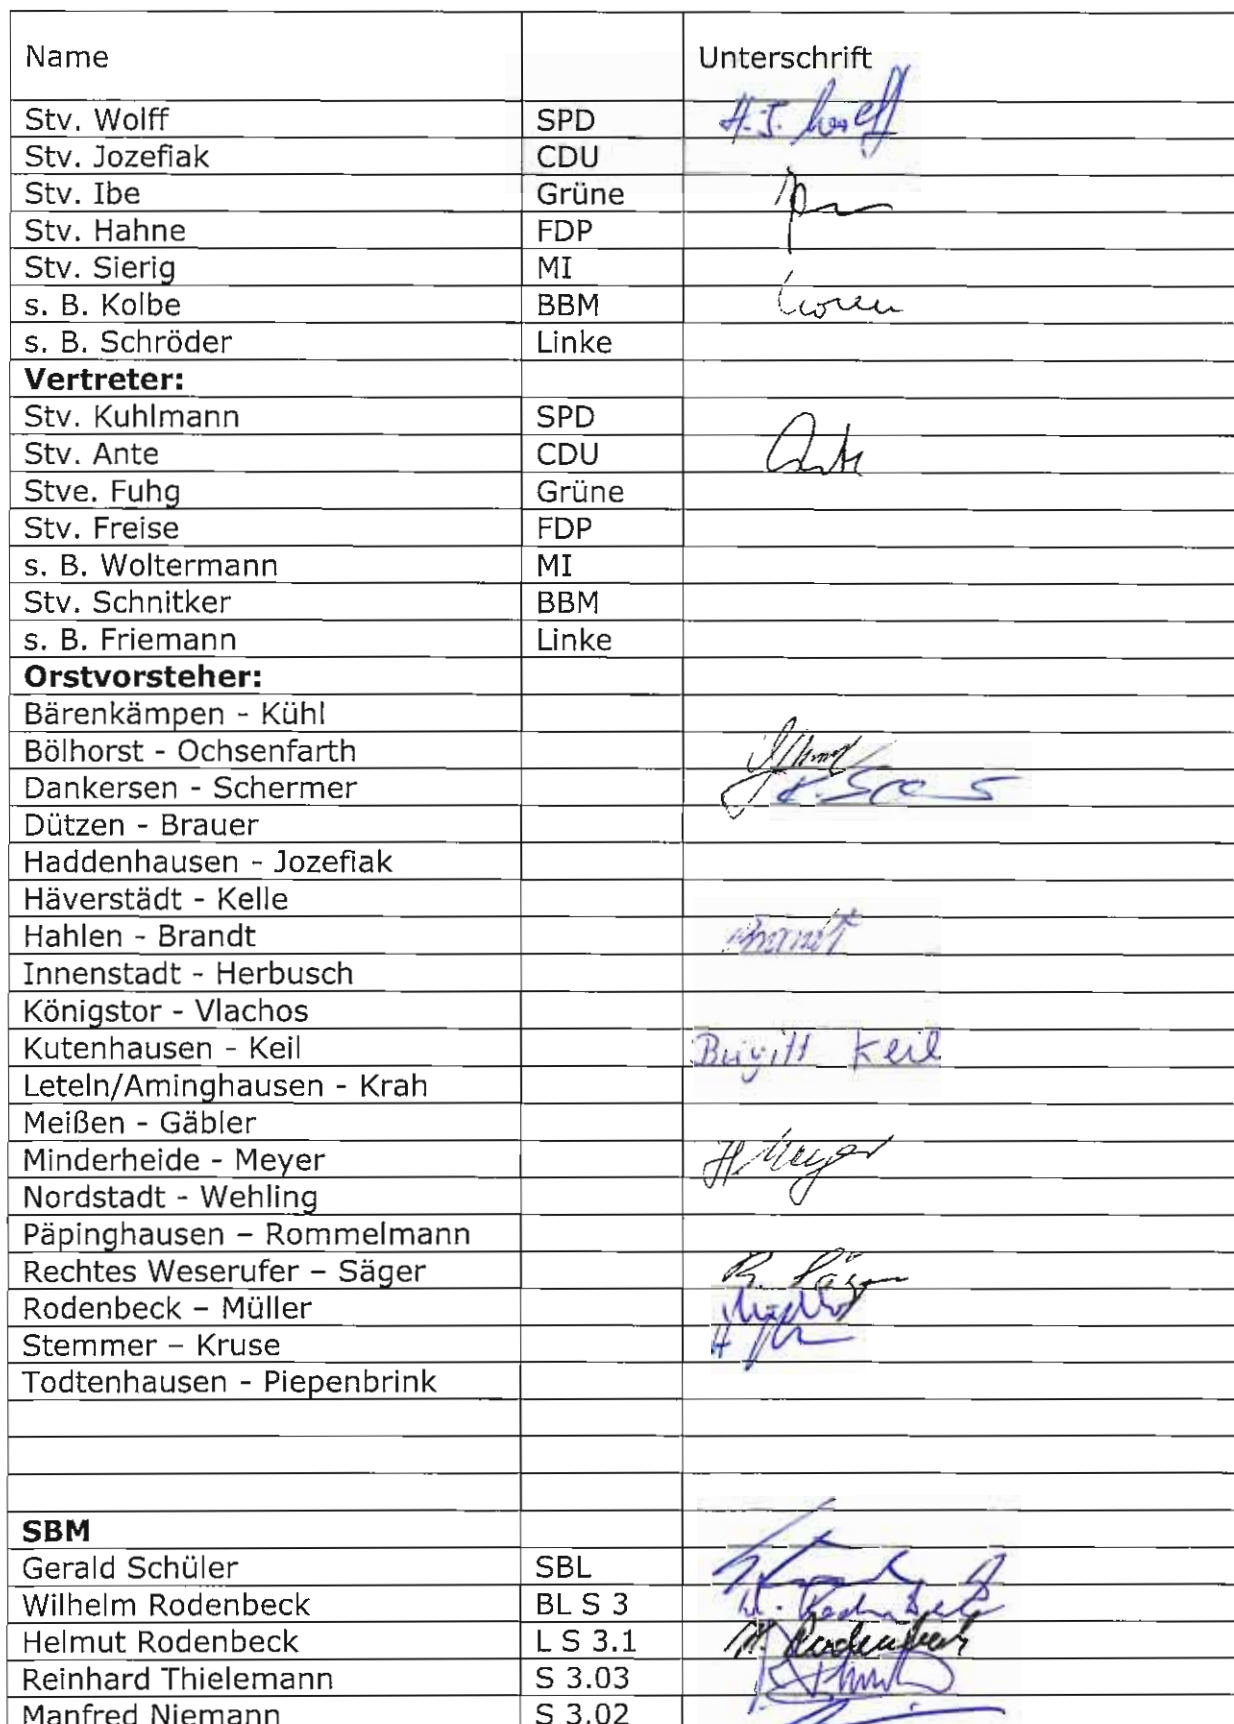 Name Unterschrift
Stv. Wolff SPD H.J. Wolff
Stv. Jozefiak CDU
Stv. Ibe Grüne
Stv. Hahne FDP
Stv. Sierig MI
s. B. Kolbe BBM
s. B. Schröder Linke
Vertreter:
Stv. Kuhlmann SPD
Stv. Ante CDU Ante
Stve. Fuhg Grüne
Stv. Freise FDP
s. B. Woltermann MI
Stv. Schnitker BBM
s. B. Friemann Linke
Orstvorsteher:
Bärenkämpen - Kühl
Bölhorst - Ochsenfarth
Dankersen - Schermer
Dützen - Brauer
Haddenhausen - Jozefiak
Häverstädt - Kelle
Hahlen - Brandt Brandt
Innenstadt - Herbusch
Königstor - Vlachos
Kutenhausen - Keil Birgitt Keil
Leteln/Aminghausen - Krah
Meißen - Gäbler
Minderheide - Meyer H. Meyer
Nordstadt - Wehling
Päpinghausen – Rommelmann
Rechtes Weserufer – Säger R. Säger
Rodenbeck – Müller
Stemmer – Kruse
Todtenhausen - Piepenbrink
SBM
Gerald Schüler SBL
Wilhelm Rodenbeck BL S 3 W. Rodenbeck
Helmut Rodenbeck L S 3.1 H. Rodenbeck
Reinhard Thielemann S 3.03
Manfred Niemann S 3.02